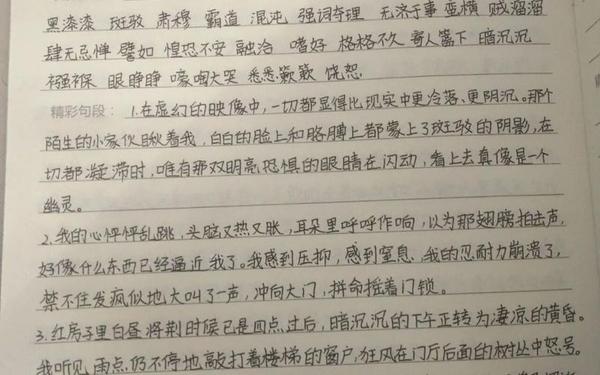 黑漆漆 斑驳 肃穆 霸道 混沌 强词夺理 无济于事 蛮横 贼溜溜
肆无忌惮 譬如 惶恐不安 融洽 嗜好 格格不久 寄人篱下 暗沉沉
襁褓 眼睁睁 嚎啕大哭 悉悉簌簌 饶恕
精彩句段: 1.在虚幻的映像中,一切都显得比现实中更冷落、更阴沉。那个
陌生的小家伙瞅着我,白白的脸上和胳膊上都蒙上了斑驳的阴影,在一
切都凝滞时,唯有那双明亮恐惧的眼睛在闪动,看上去真像是一个
幽灵。
2.我的心怦怦乱跳,头脑又热又胀,耳朵里呼呼作响,以为那翅膀拍击声,
好像什么东西已经逼近我了。我感到压抑,感到窒息,我的忍耐力崩溃了,
禁不住发疯似地大叫了一声,冲向大门,拼命摇着门锁。
3.红房子里白昼将荆时候已是四点过后,暗沉沉的下午正转为凄凉的黄昏。
我听见雨点仍不停地敲打着楼梯的窗户,狂风在门厅后面的树丛中怒号。